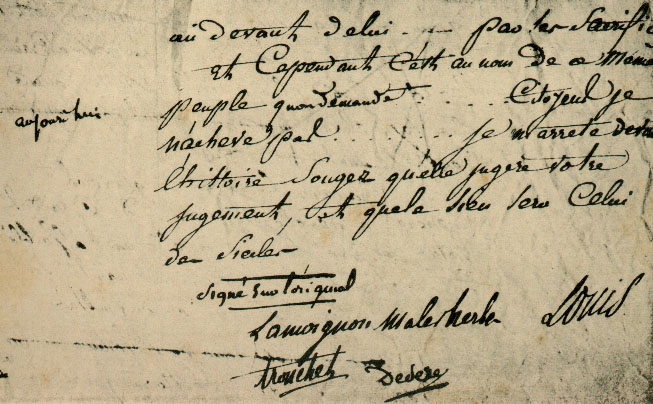 au devant de lui . — . par les Sacrific
Et Cependant C'est au nom de ce Même
aujourd'hui
peuple qu'on demande . . . . Citoyens je
n'achève pas . . . . . . je m'arrete devan
l'histoire Songez qu'elle jugera votre
jugement, et que le sien sera Celui
des Siecles
Signé Sur l'original
Lamoignon Malesherbes Louis
Tronchet Deseze